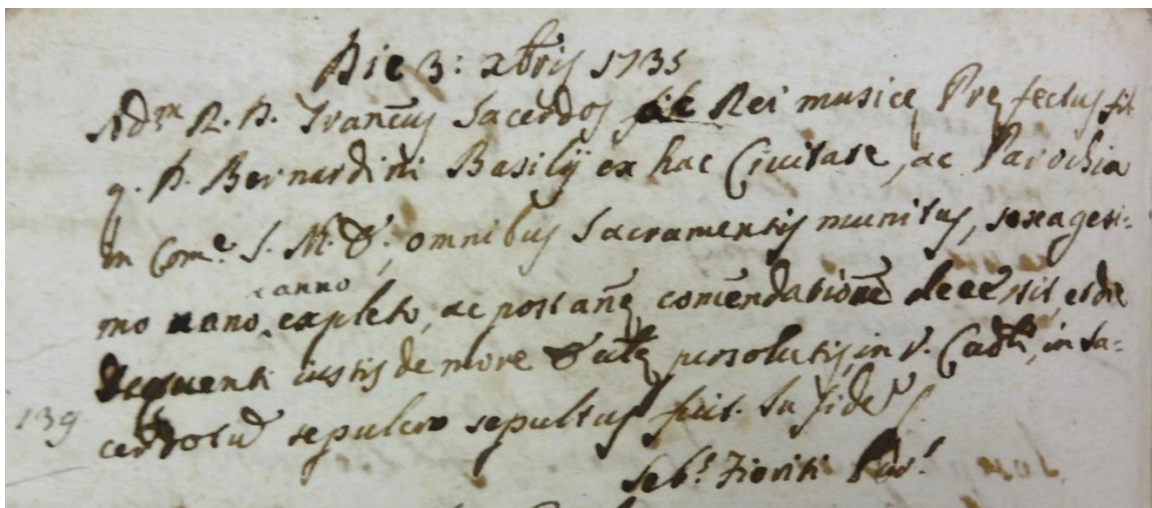 Die 3: Xbris 1735
Adm R. D. Franc̃us Sacerdos Rei musicę Pręfectus fil
q. D. Bernardini Basilij ex hac Civitate, ac Parochia
in Com.e S. M. &, omnibus Sacramentis munitus, sexagesi=
mo nono anno expleto, ac post anę comẽdationẽ decessit, et die
sequenti iustis de more persolutis, in V. Cadli, in Sa=
139
cerdotũ sepulcro sepultus fuit. In fide
Seb.s Fioriti Par.